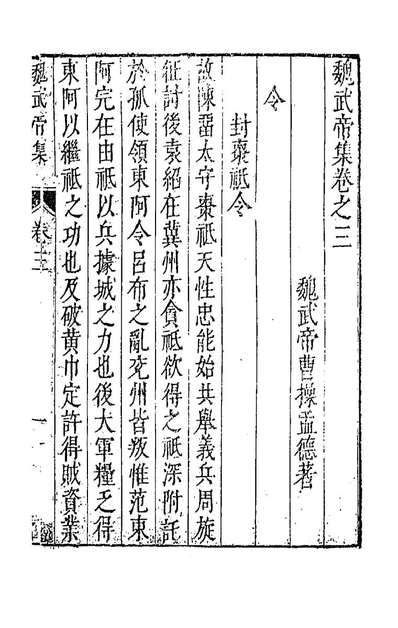 魏武帝集卷之三
魏武帝曹操孟德著
令
封棗祗令
故陳留太守棗祗天性忠能始共舉義兵周旋
征討後袁紹在冀州亦貪祗欲得之祗深附託
於孤使領東阿令呂布之亂兗州皆叛惟范東
阿完在由祗以兵據城之力也後大軍糧乏得
東阿以繼祗之功也及破黃巾定許得賊資業
魏武帝集
卷三
一